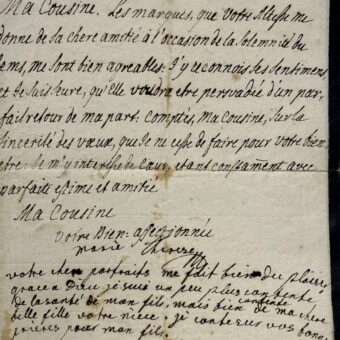 Ma Cousine. Les marques, que Votre Altesse me
donne de sa chere amitié à l'occasion de la Solemnité du
tems, me sont bien agreables: J'y reconnois ses sentimens,
et Je Sais sure, qu'elle voudra etre persvadée d'un par-
fait retour de ma part: comptés, ma Cousine, sur la
sincerité des vœux, que Je ne cesse de faire pour votre bien-
etre: Je m'y interesse de Cœur, etant constamment avec
parfaite estime et amitié
Ma Cousine
Votre Bien-affectionnée
marie Therese
votre cher portraits me fait bien du plaisir
grace a Dieu je suis un peu plus contente
de la santé de mon fils, mais bien contente de ma chere
belle fille votre niece, je conte sur vos bonnes
prieres pour mon fils.